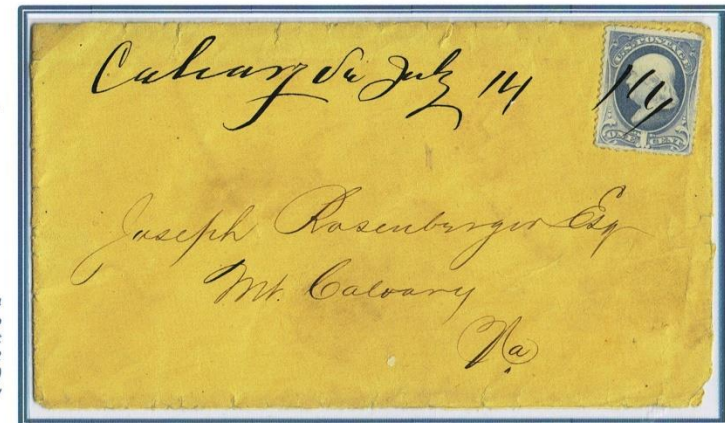 Calvary Va July 14
U.S. POSTAGE
ONE CENT
Joseph Rosenberger Esq
Mt. Calvary
Va